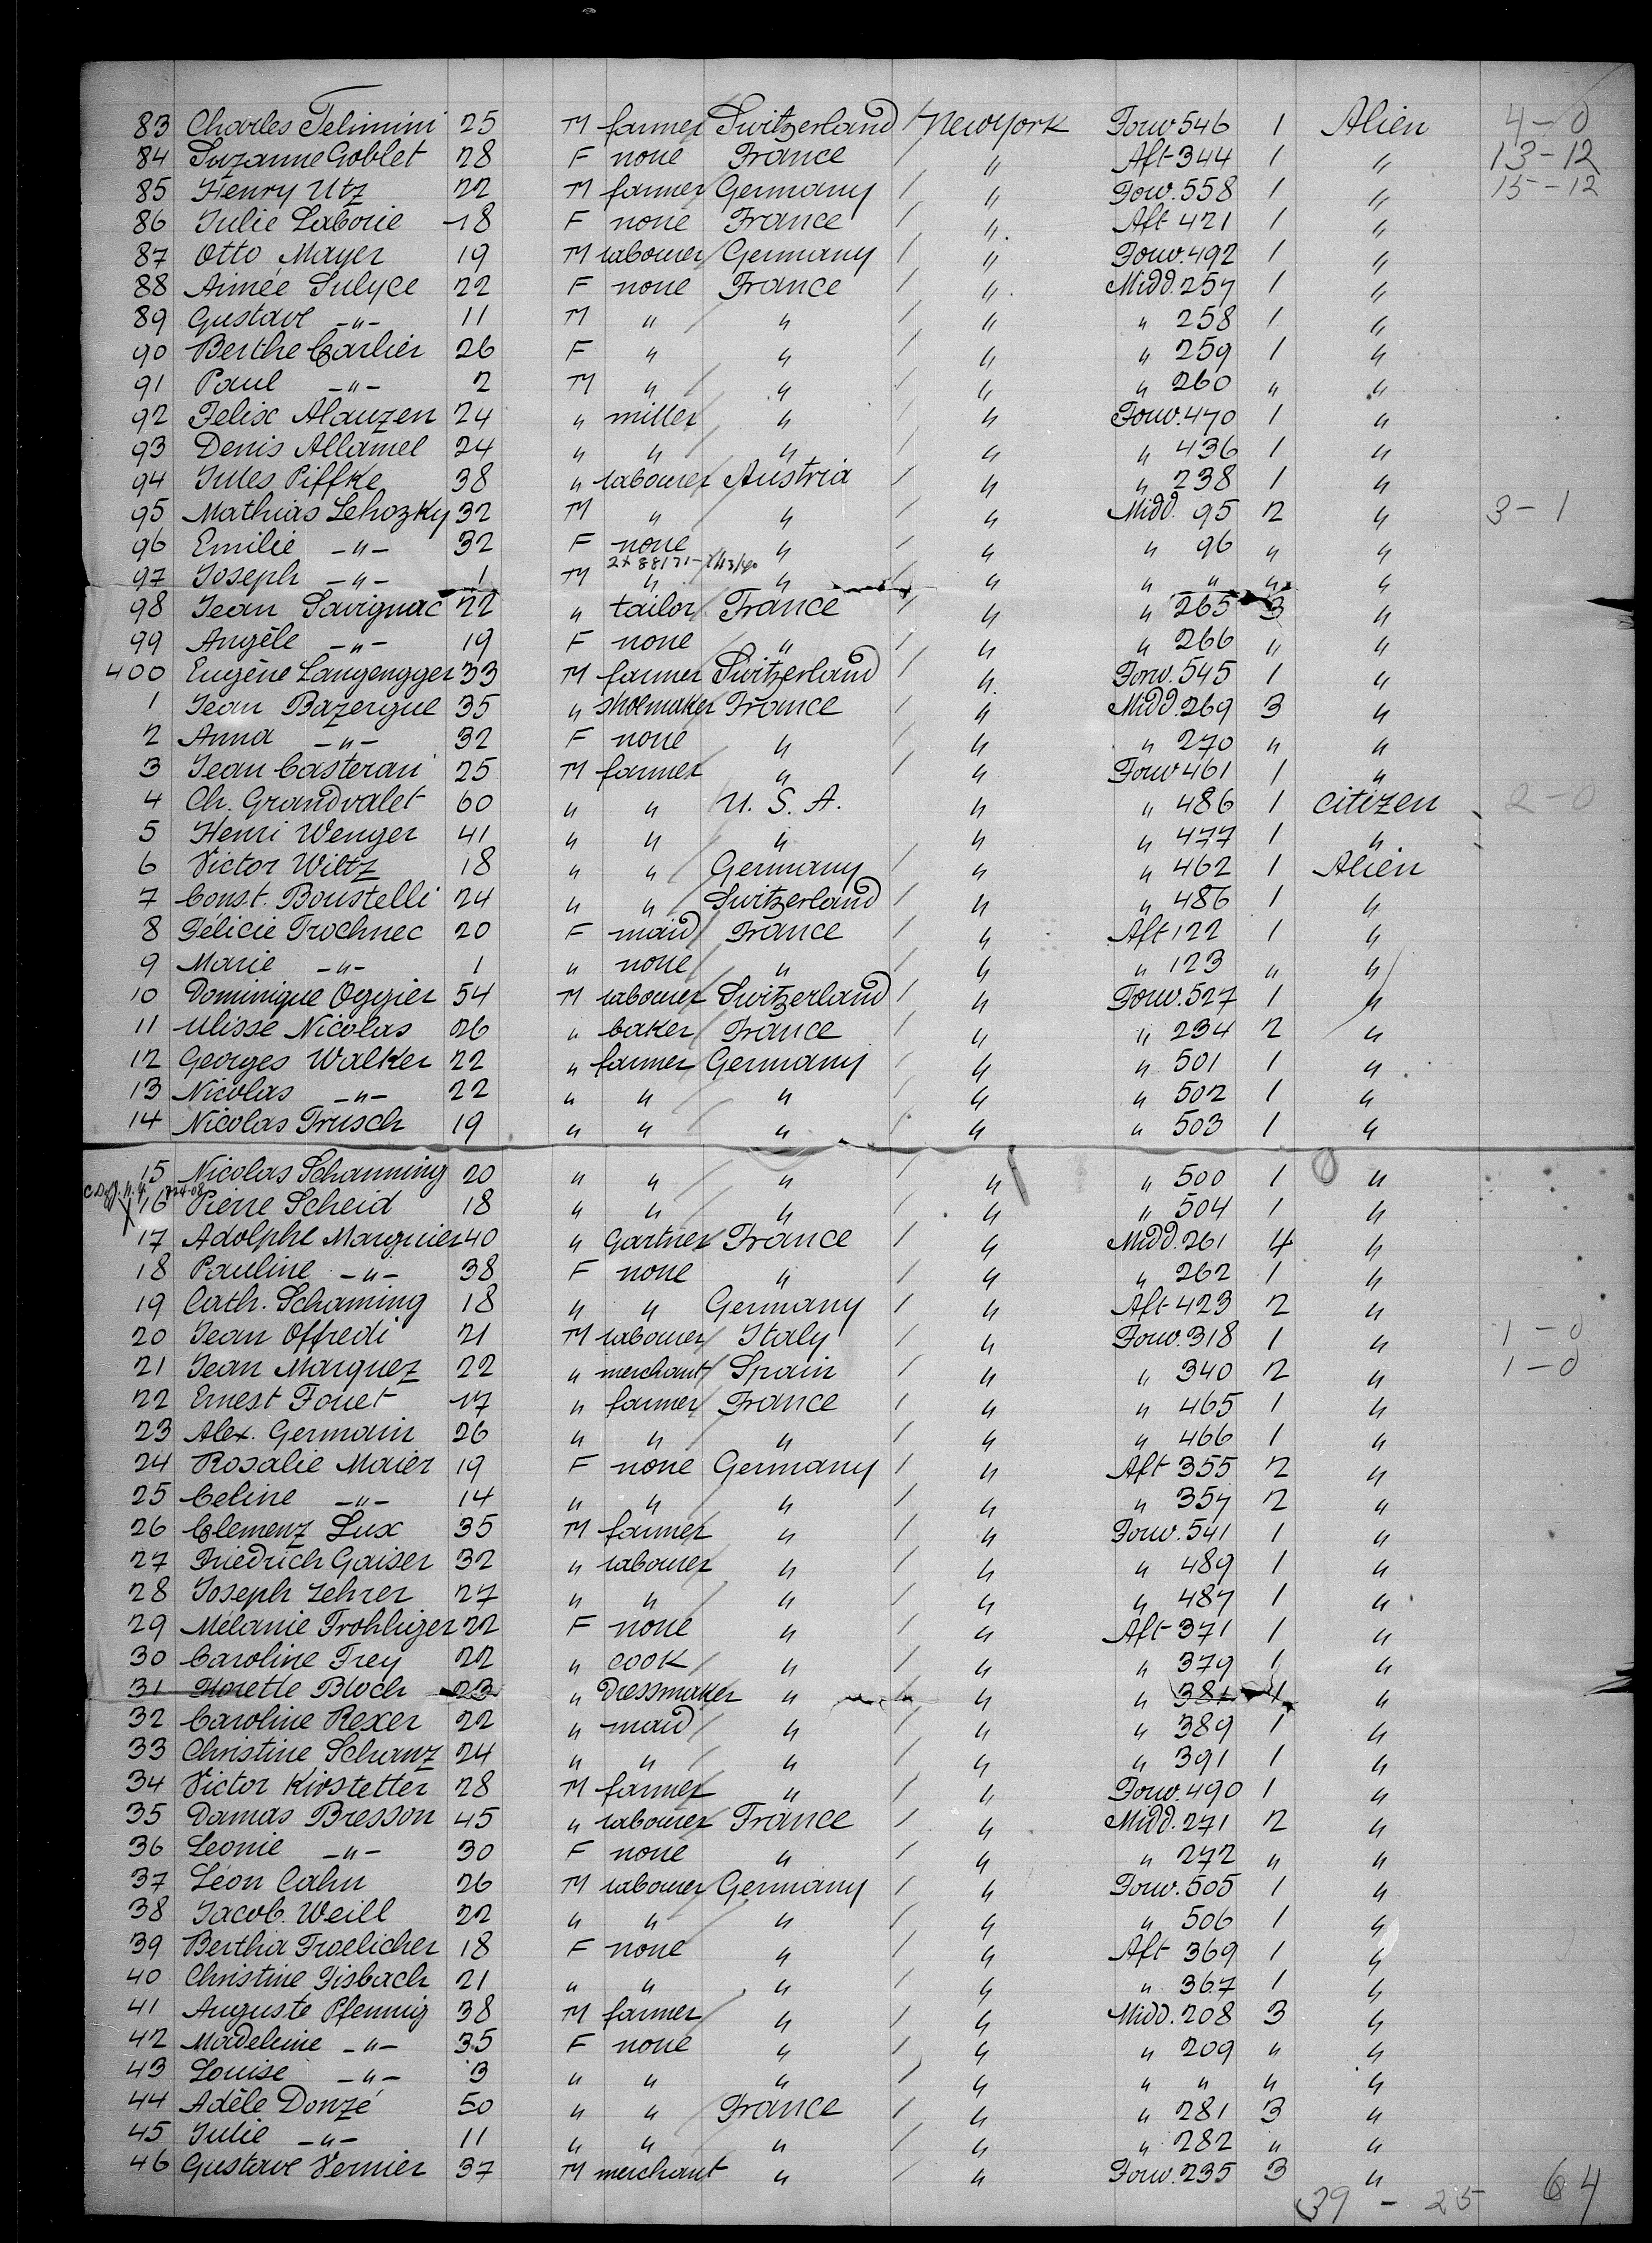 83 Charles Telimini 25 M farmer Switzerland / New York Forw 546 1 Alien 4-0
84 Suzanne Goblet 28 F none France / " Aft 344 1 " 13-12
85 Henry Utz 22 M farmer Germany / " Forw. 558 1 " 15-12
86 Julie Laborie 18 F none France / " Aft 421 1 "
87 Otto Mayer 19 M labourer Germany / " Forw. 492 1 "
88 Aimée Sulyce 22 F none France / " Midd. 257 1 "
89 Gustave -"- 11 M " " / " " 258 1 "
90 Berthe Carlier 26 F " " / " " 259 1 "
91 Paul -"- 2 M " " / " " 260 " "
92 Felix Alauzen 24 " miller " / " Forw. 470 1 "
93 Denis Allamel 24 " " " / " " 436 1 "
94 Jules Piffke 38 " labourer Austria / " " 238 1 "
95 Mathias Lehozky 32 M " " / " Midd. 95 2 " 3-1
96 Emilie -"- 32 F none " / " " 96 " "
97 Joseph -"- 1 M " " / " " " " "
98 Jean Savignac 22 " tailor France / " " 265 3 "
99 Angèle -"- 19 F none " / " " 266 " "
400 Eugène Langengger 33 M farmer Switzerland / " Forw. 545 1 "
1 Jean Bazergue 35 " shoemaker France / " Midd. 269 3 "
2 Anna -"- 32 F none " / " " 270 " "
3 Jean Casteran 25 M farmer " / " Forw 461 1 "
4 Ch. Grandvalet 60 " " U. S. A. " " 486 1 citizen 2-0
5 Henri Wenger 41 " " " " " 477 1 "
6 Victor Wiltz 18 " " Germany / " " 462 1 Alien
7 Const. Boustelli 24 " " Switzerland / " " 486 1 "
8 Félicie Trochnec 20 F maid France / " Aft 122 1 "
9 Marie -"- 1 " none " / " " 123 " "
10 Dominique Oggier 54 M labourer Switzerland / " Forw. 527 1 "
11 Ulisse Nicolas 26 " baker France / " " 234 2 "
12 Georges Walker 22 " farmer Germany / " " 501 1 "
13 Nicolas -"- 22 " " " / " " 502 1 "
14 Nicolas Trusch 19 " " " / " " 503 1 "
15 Nicolas Schamming 20 " " " / " " 500 1 "
X 16 Pierre Scheid 18 " " " / " " 504 1 "
17 Adolphe Marguier 40 " Gartner France / " Midd. 261 4 "
18 Pauline -"- 38 F none " / " " 262 1 "
19 Cath. Schaming 18 " " Germany / " Aft 423 2 "
20 Jean Offredi 21 M labourer Italy / " Forw. 318 1 " 1-0
21 Jean Marquez 22 " merchant Spain / " " 340 2 " 1-0
22 Ernest Fouet 17 " farmer France / " " 465 1 "
23 Alex. Germain 26 " " " / " " 466 1 "
24 Rosalie Maier 19 F none Germany / " Aft 355 2 "
25 Celine -"- 14 " " " / " " 357 2 "
26 Clemenz Lux 35 M farmer " / " Forw. 541 1 "
27 Friedrich Gaiser 32 " labourer " / " " 489 1 "
28 Joseph Zehrer 27 " " " / " " 487 1 "
29 Mélanie Frohliger 22 F none " / " Aft 371 1 "
30 Caroline Frey 22 " cook " / " " 379 1 "
31 Florette Bloch 23 " Dressmaker " / " " 381 1 "
32 Caroline Rexer 22 " maid " / " " 389 1 "
33 Christine Schanz 24 " " " / " " 391 1 "
34 Victor Kirstetter 28 M farmer " / " Forw. 490 1 "
35 Damas Bresson 45 " labourer France / " Midd. 271 2 "
36 Leonie -"- 30 F none " / " " 272 " "
37 Léon Cahn 26 M labourer Germany / " Forw. 505 1 "
38 Jacob Weill 22 " " " / " " 506 1 "
39 Bertha Froelicher 18 F none " / " Aft 369 1 "
40 Christine Gisbach 21 " " " / " " 367 1 "
41 Auguste Pfennig 38 M farmer " / " Midd. 208 3 "
42 Madeleine -"- 35 F none " / " " 209 " "
43 Louise -"- 3 " " " / " " " " "
44 Adèle Donzé 50 " " France / " " 281 3 "
45 Julie -"- 11 " " " / " " 282 " "
46 Gustave Vernier 37 M merchant " / " Forw. 235 3 "
39 - 25 64